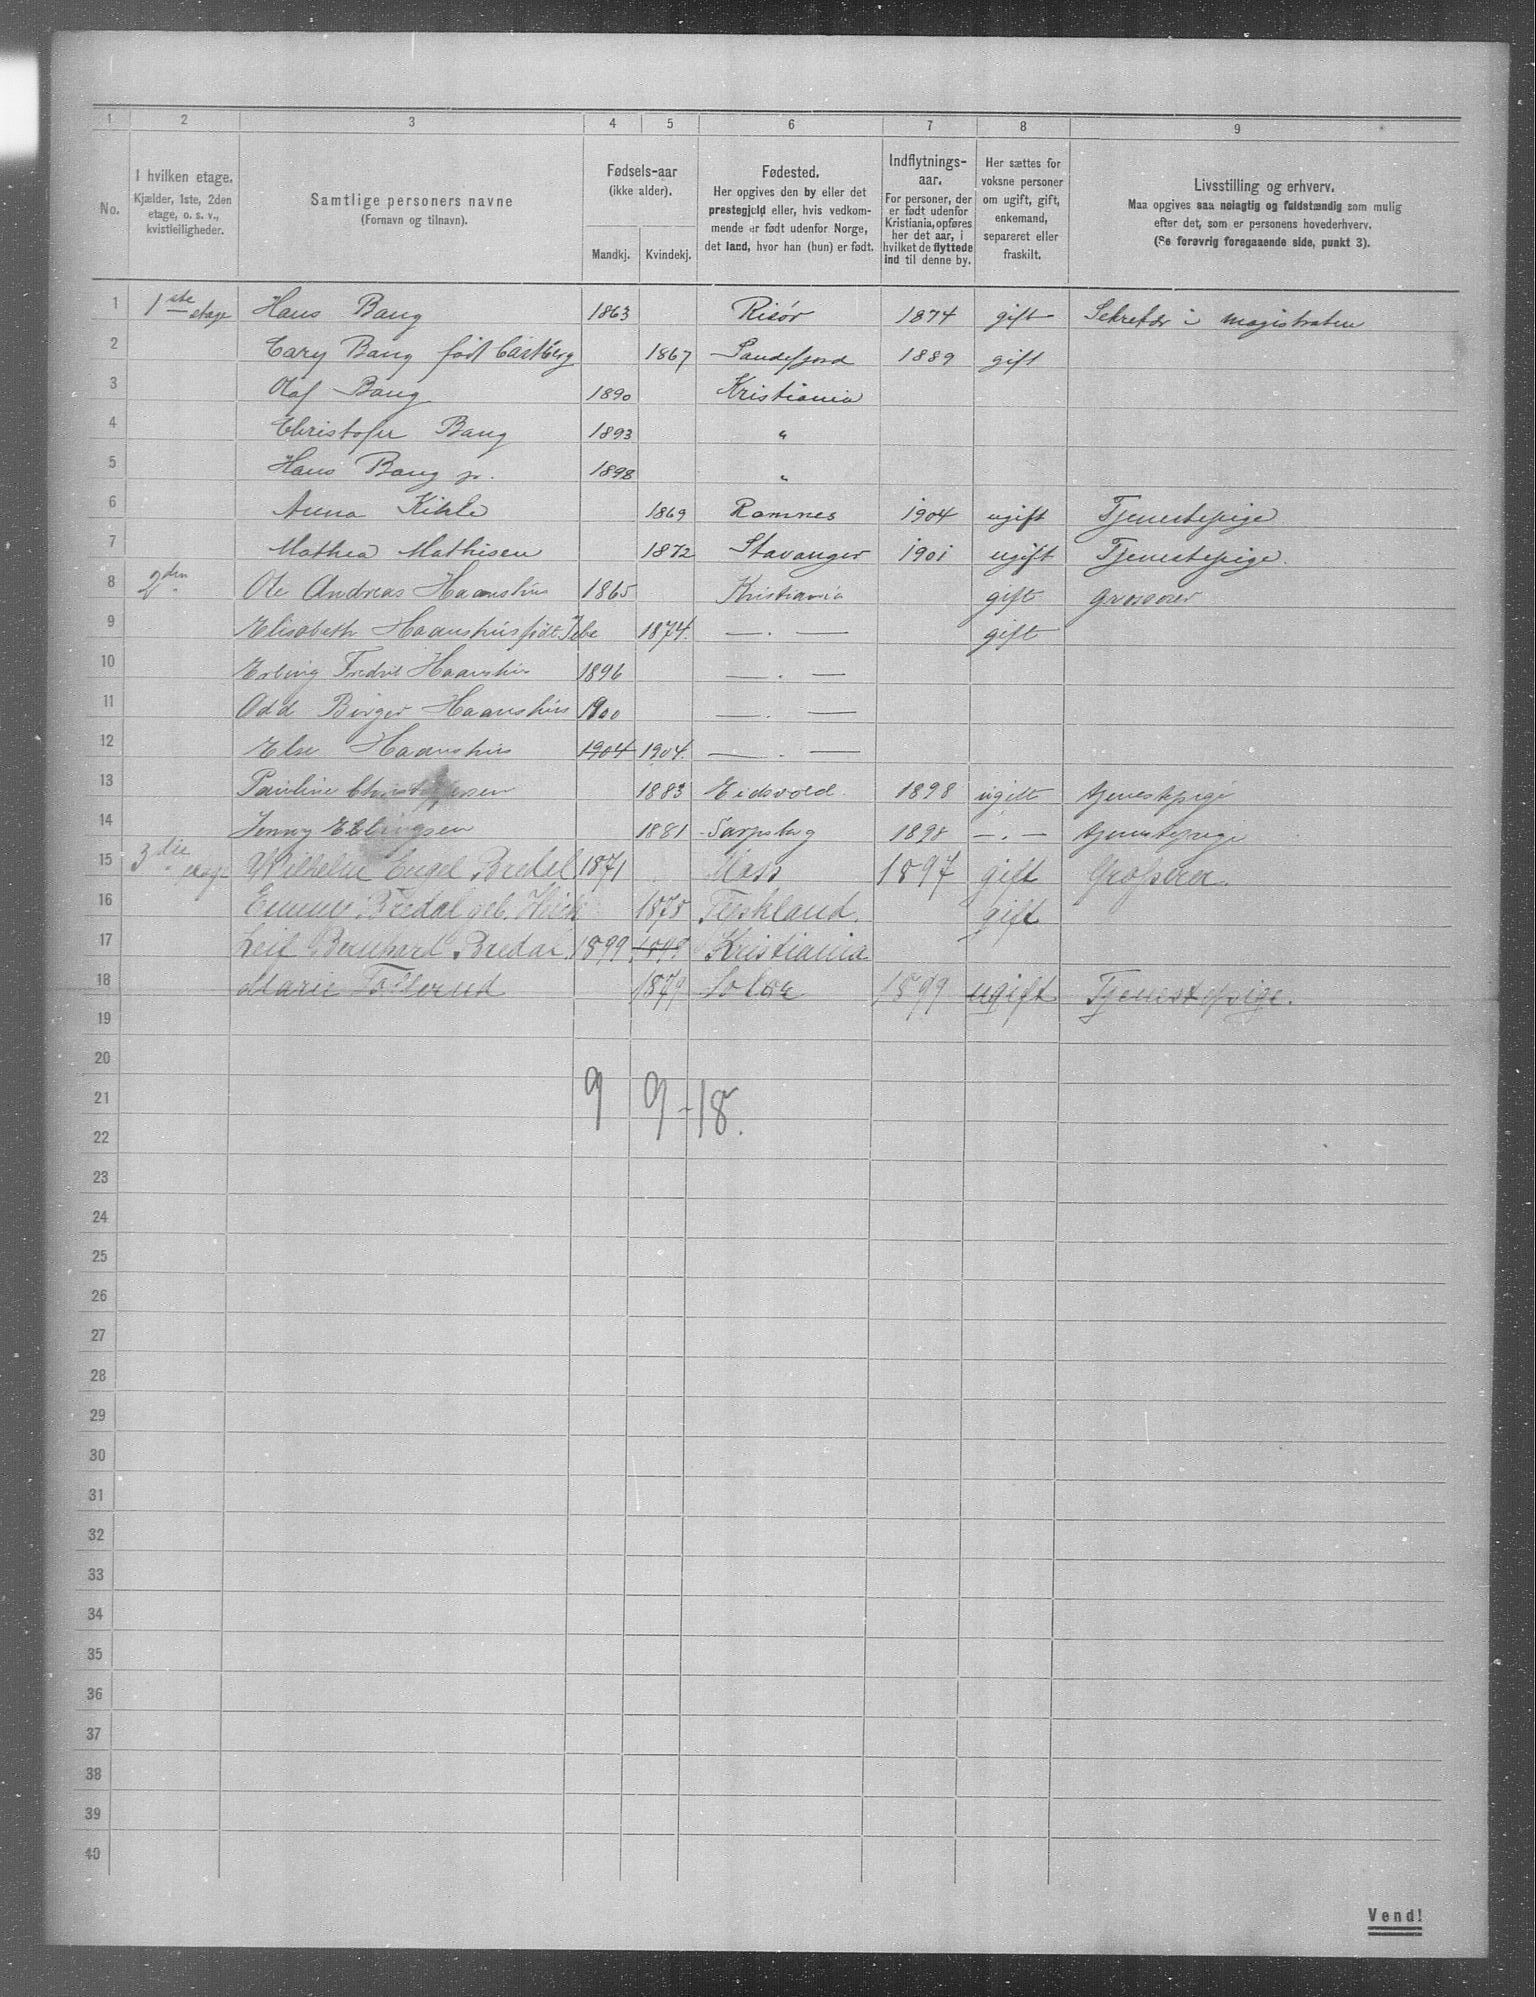 1 2 3 4 5 6 7 8 9
No.
I hvilken etage.
Kjælder, 1ste, 2den
etage, o. s. v.,
kvistleiligheder.
Samtlige personers navne
(Fornavn og tilnavn).
Fødsels-aar
(ikke alder).
Mandkj. Kvindekj.
Fødested.
Her opgives den by eller det
prestegjeld eller, hvis vedkom-
mende er født udenfor Norge,
det land, hvor han (hun) er født.
Indflytnings-
aar.
For personer, der
er født udenfor
Kristiania, opføres
her det aar, i
hvilket de flyttede
ind til denne by.
Her sættes for
voksne personer
om ugift, gift,
enkemand,
separeret eller
fraskilt.
Livsstilling og erhverv.
Maa opgives saa nøiagtig og fuldstændig som mulig
efter det, som er personens hovederhverv.
(Se forøvrig foregaaende side, punkt 3).
1 1ste etage Hans Bang 1863 Risør 1874 gift Sekretær i magistraten
2 Cary Bang født Castberg 1867 Sandefjord 1889 gift
3 Olaf Bang 1890 Kristiania
4 Christofer Bang 1893 "
5 Hans Bang jr. 1898 "
6 Anna Kihle 1869 Ramnes 1904 ugift Tjenestepige
7 Mathea Mathisen 1872 Stavanger 1901 ugift Tjenestepige.
8 2den Ole Andreas Haanshus 1865 Kristiania gift Grosserer
9 Elisabeth Haanshus født 1874. — . — gift
10 Erling Fredrik Haanshus 1896 — . —
11 Odd Birger Haanshus 1900 — . —
12 Else Haanshus 1904 1904. — . —
13 Pauline Christophersen 1883 Eidsvold. 1898 ugift tjenestepige
14 Jenny Ellingsen 1881 Sarpsborg 1898 — . — tjenestepige
15 3die etage Wilhelm Engel Bredal 1871 Moss 1897 gift Grosserer.
16 Emmy Bredal geb. 1878 Tyskland. gift
17 Leif Bernhard Bredal. 1899 1899 Kristiania
18 Marie 1879 Soløe 1899 ugift Tjenestepige.
19
20
21 9 9 - 18.
22
23
24
25
26
27
28
29
30
31
32
33
34
35
36
37
38
39
40
Vend!